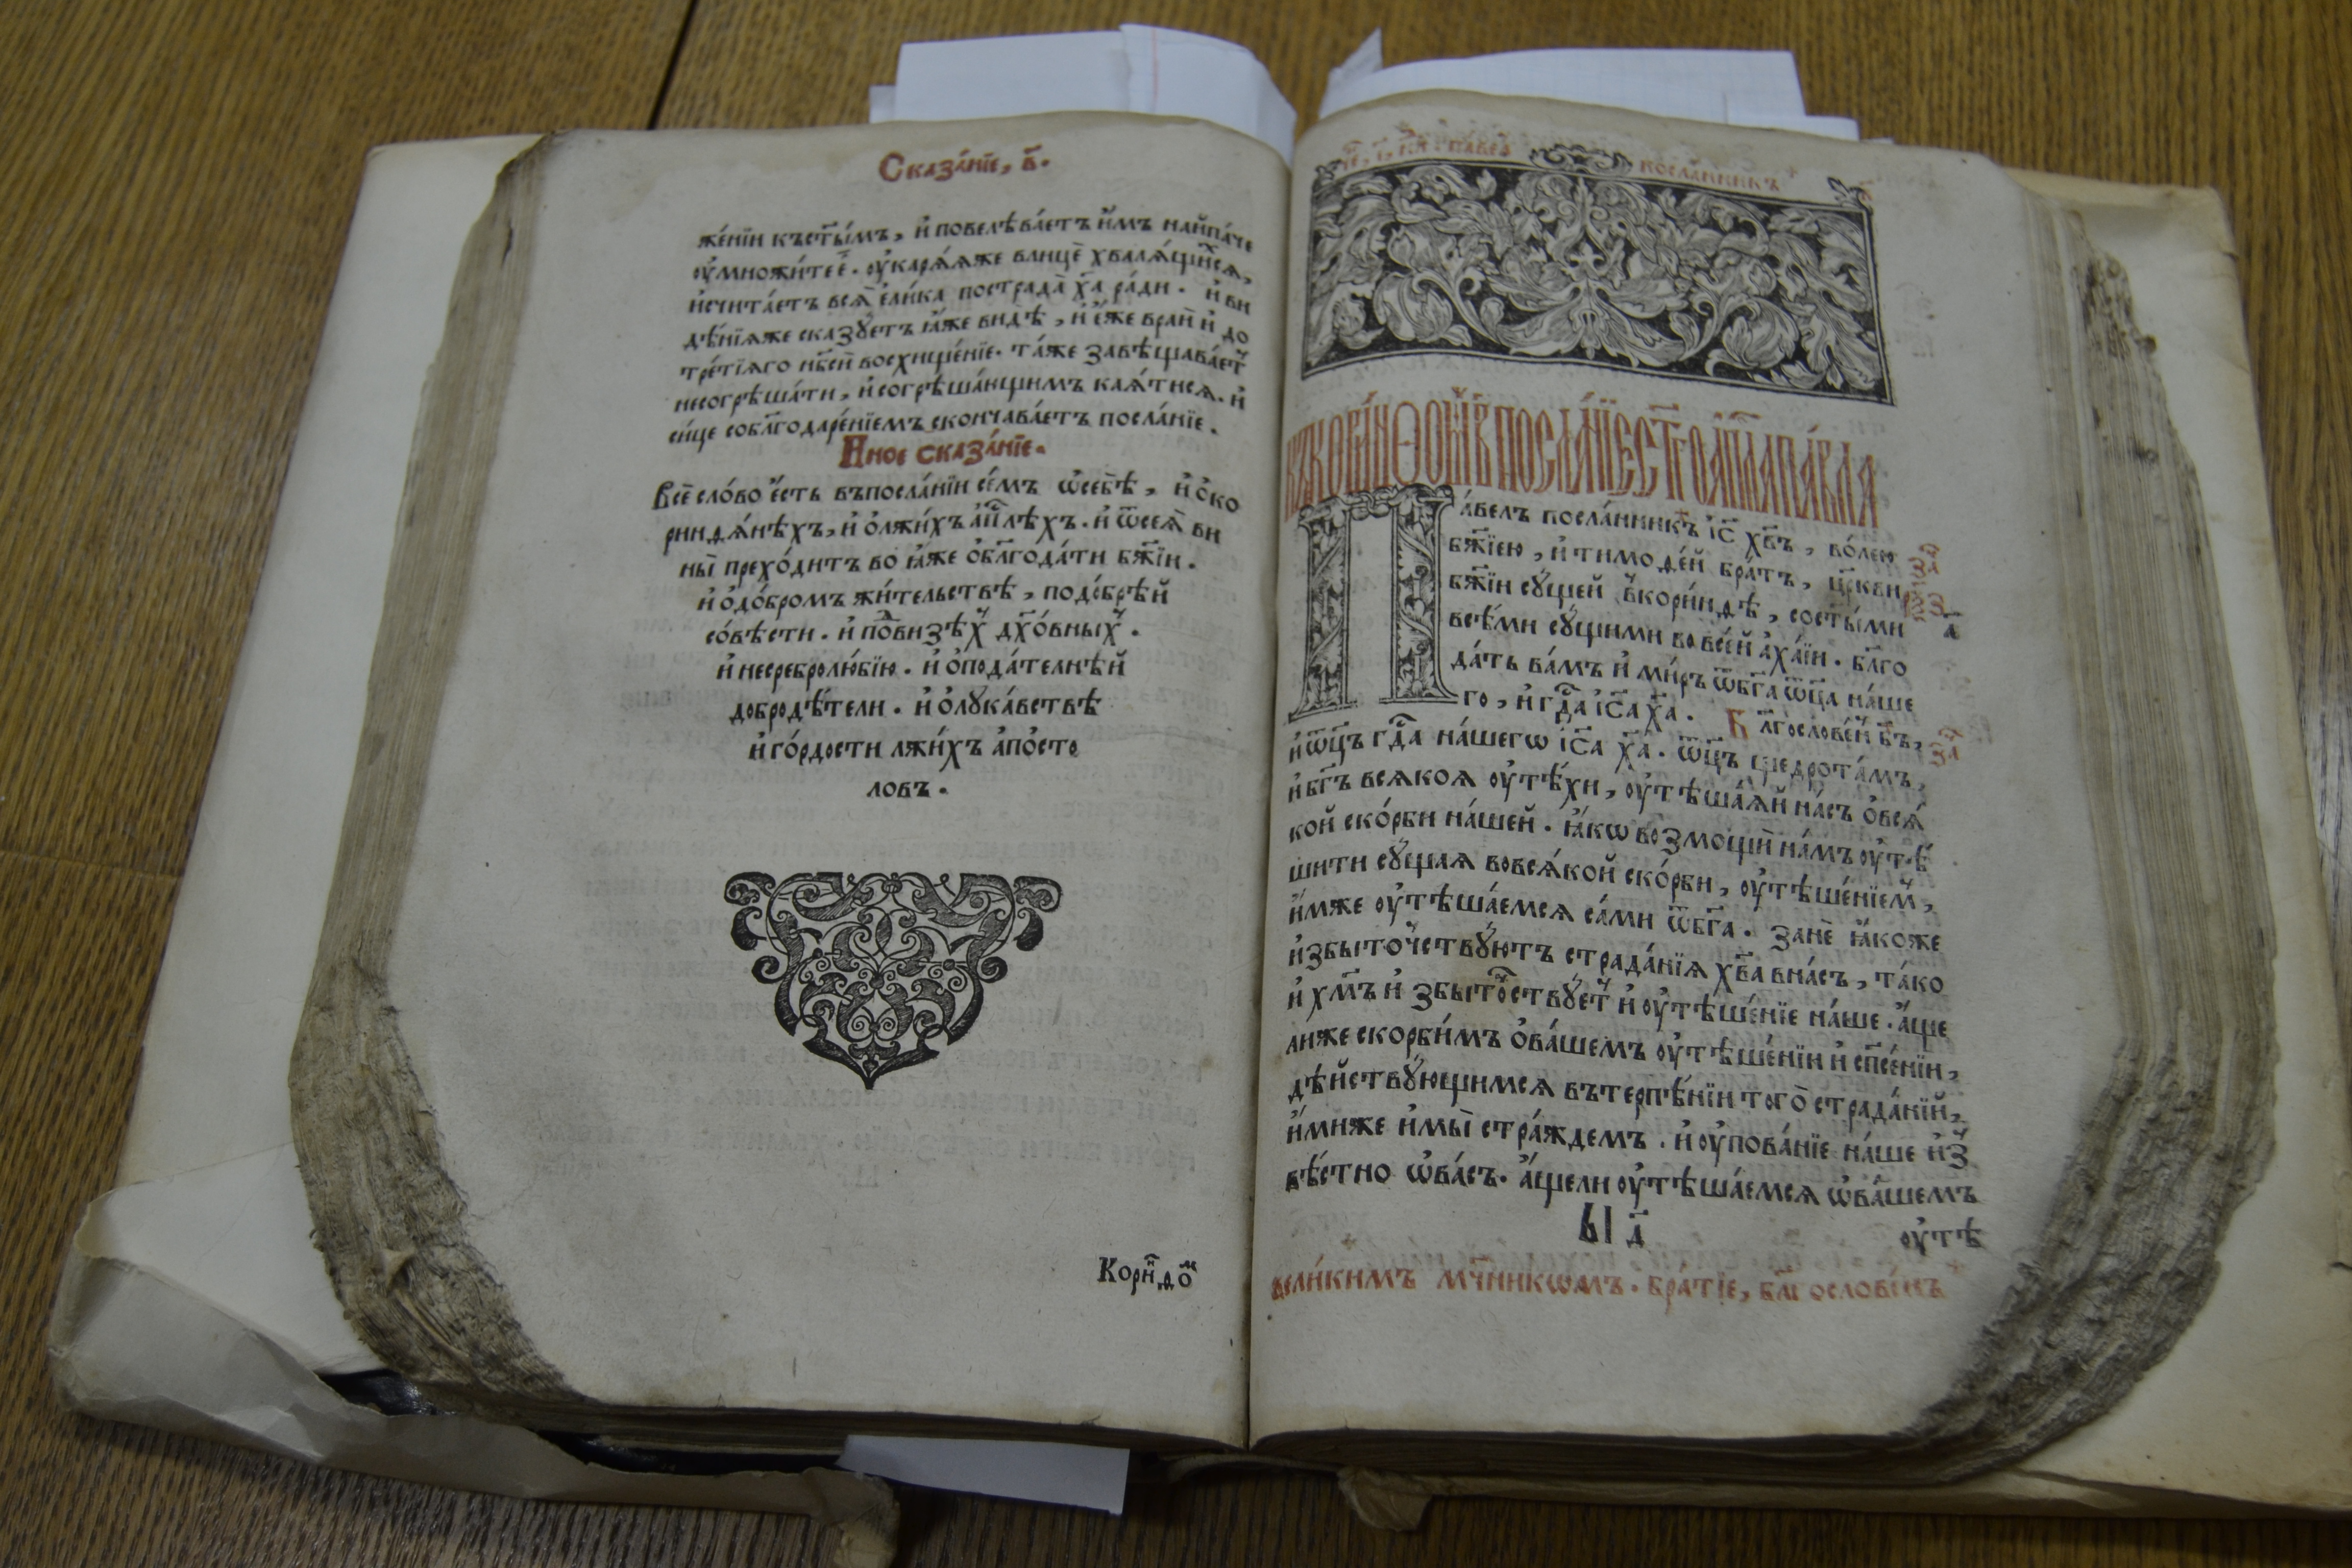 Сказа́нїе, в҃.
же́нїи къст҃ы́мъ, и҆ повелѣва́етъ и҆̀мъ найпа́че
оу҆множи́тее҆̀. оу҆каря́яже влицѐ хваля́щи̑ся,
и҆счита́етъ вся̀ е҆ли́ка пострада̀ х҃а ра́ди. и҆ ви
дѣ́нїяже сказꙋ́етъ ꙗ҆́же видѣ, и҆ е҆́же вра́й и҆ до
тре́тїяго нб҃сѝ восхище́нїе. та́же завѣщава́ет̾
несогрѣша́ти, и҆согрѣша́ющимъ кая́тися. и҆
си́це собл҃года́ре́нїемъ скончава́етъ посла́нїе.
И҆ное сказа́нїе.
Всѐ сло́во е҆́сть въпосла́нїи се́мъ ѡ҆себѣ̀, и҆ ѻ҆ко
ринѳя́нѣхъ, и҆ ѻ҆лжи́хъ а҆п҃лѣхъ. и҆ ѿсея̀ ви
ны̀ прехо́дитъ во ꙗ҆́же ѻ҆бл҃года́ти бж҃їи.
и҆ ѻ҆до́бромъ жи́тельствѣ, подо́брѣй
со́вѣсти. и҆ по́двизѣх̾ дх҃о́вных̾.
и҆ несребролю́бїю. и҆ ѻ҆пода́телнѣй
добродѣ́тели. и҆ ѻ҆лꙋка́вствѣ
и҆ го́рдости лжи́хъ а҆по́сто
ловъ.
Корн́ѳом
посла́нникъ
ѳом в҃ посла́нїе ст҃го а҆п҃ла па́вла
Па́велъ посла́нникъ і҆с҃ хв҃ъ, во́лею
бж҃їею, и҆ тимоѳе́й бра́тъ, цр҃кви
бж҃їи сꙋ́щей в̾кори́нѳѣ, сост҃ы́ми
все́ми сꙋ́щими во все́й а҆ха́їи. бл҃го
да́ть ва́мъ и҆ ми́ръ ѿбг҃а ѿц҃а на́ше
го, и҆ гд҃а і҆с҃а х҃а. Бл҃гослове́н̾ бг҃ъ,
и҆ ѿц҃ъ гд҃а на́шегѡ і҆с҃а х҃а. ѿц҃ъ щедрота́мъ,
и҆ бг҃ъ всякоя оу҆тѣ́хи, оу҆тѣша́яй на́съ ѻ҆вся́
кой ско́рби на́шей. ꙗ҆́кѡ возмощѝ на́мъ оу҆тѣ́
шити сꙋ́щая вовся́кой ско́рби, оу҆тѣше́нїем̾,
и҆́мже оу҆тѣша́емся са́ми ѿбг҃а. занѐ ꙗ҆́коже
и҆збыто́чствꙋютъ страда́нїя хв҃а вна́съ, та́ко
и҆ хм҃ъ и҆ збыто́чствꙋет̾ и҆ оу҆тѣше́нїе на́ше. а҆́ще
лиже скорби́мъ ѻ҆ва́шемъ оу҆тѣше́нїи и҆ сп҃се́нїи,
дѣ́йствꙋющимся вътерпѣ́нїи того̀ страда́нїй,
и҆́миже и҆мы̀ стра́ждемъ. и҆ оу҆пова́нїе на́ше и҆з̾
вѣ́стно ѡ҆ва́съ. а҆́щели оу҆тѣша́емся ѡ҆ва́шемъ
ы д҃ оу҆тѣ
вели́кимъ мч҃никѡмъ. бра́тїе, бл҃гослове́нъ